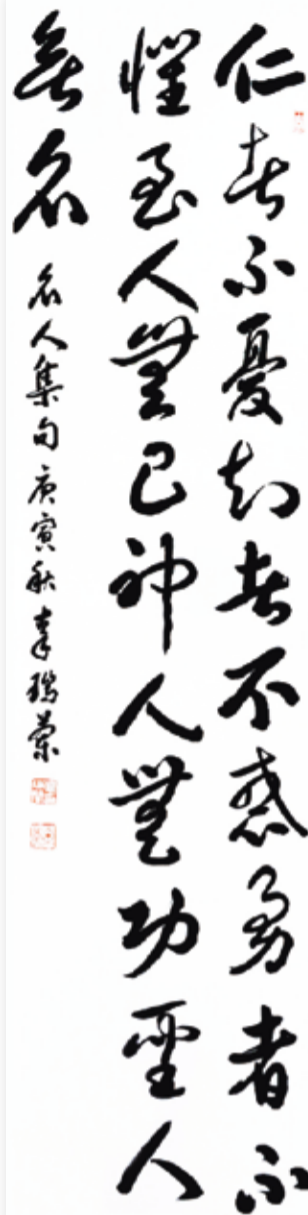 仁者不憂知者不惑勇者不
懼至人無己神人無功聖人
無名
名人集句庚寅秋瑞